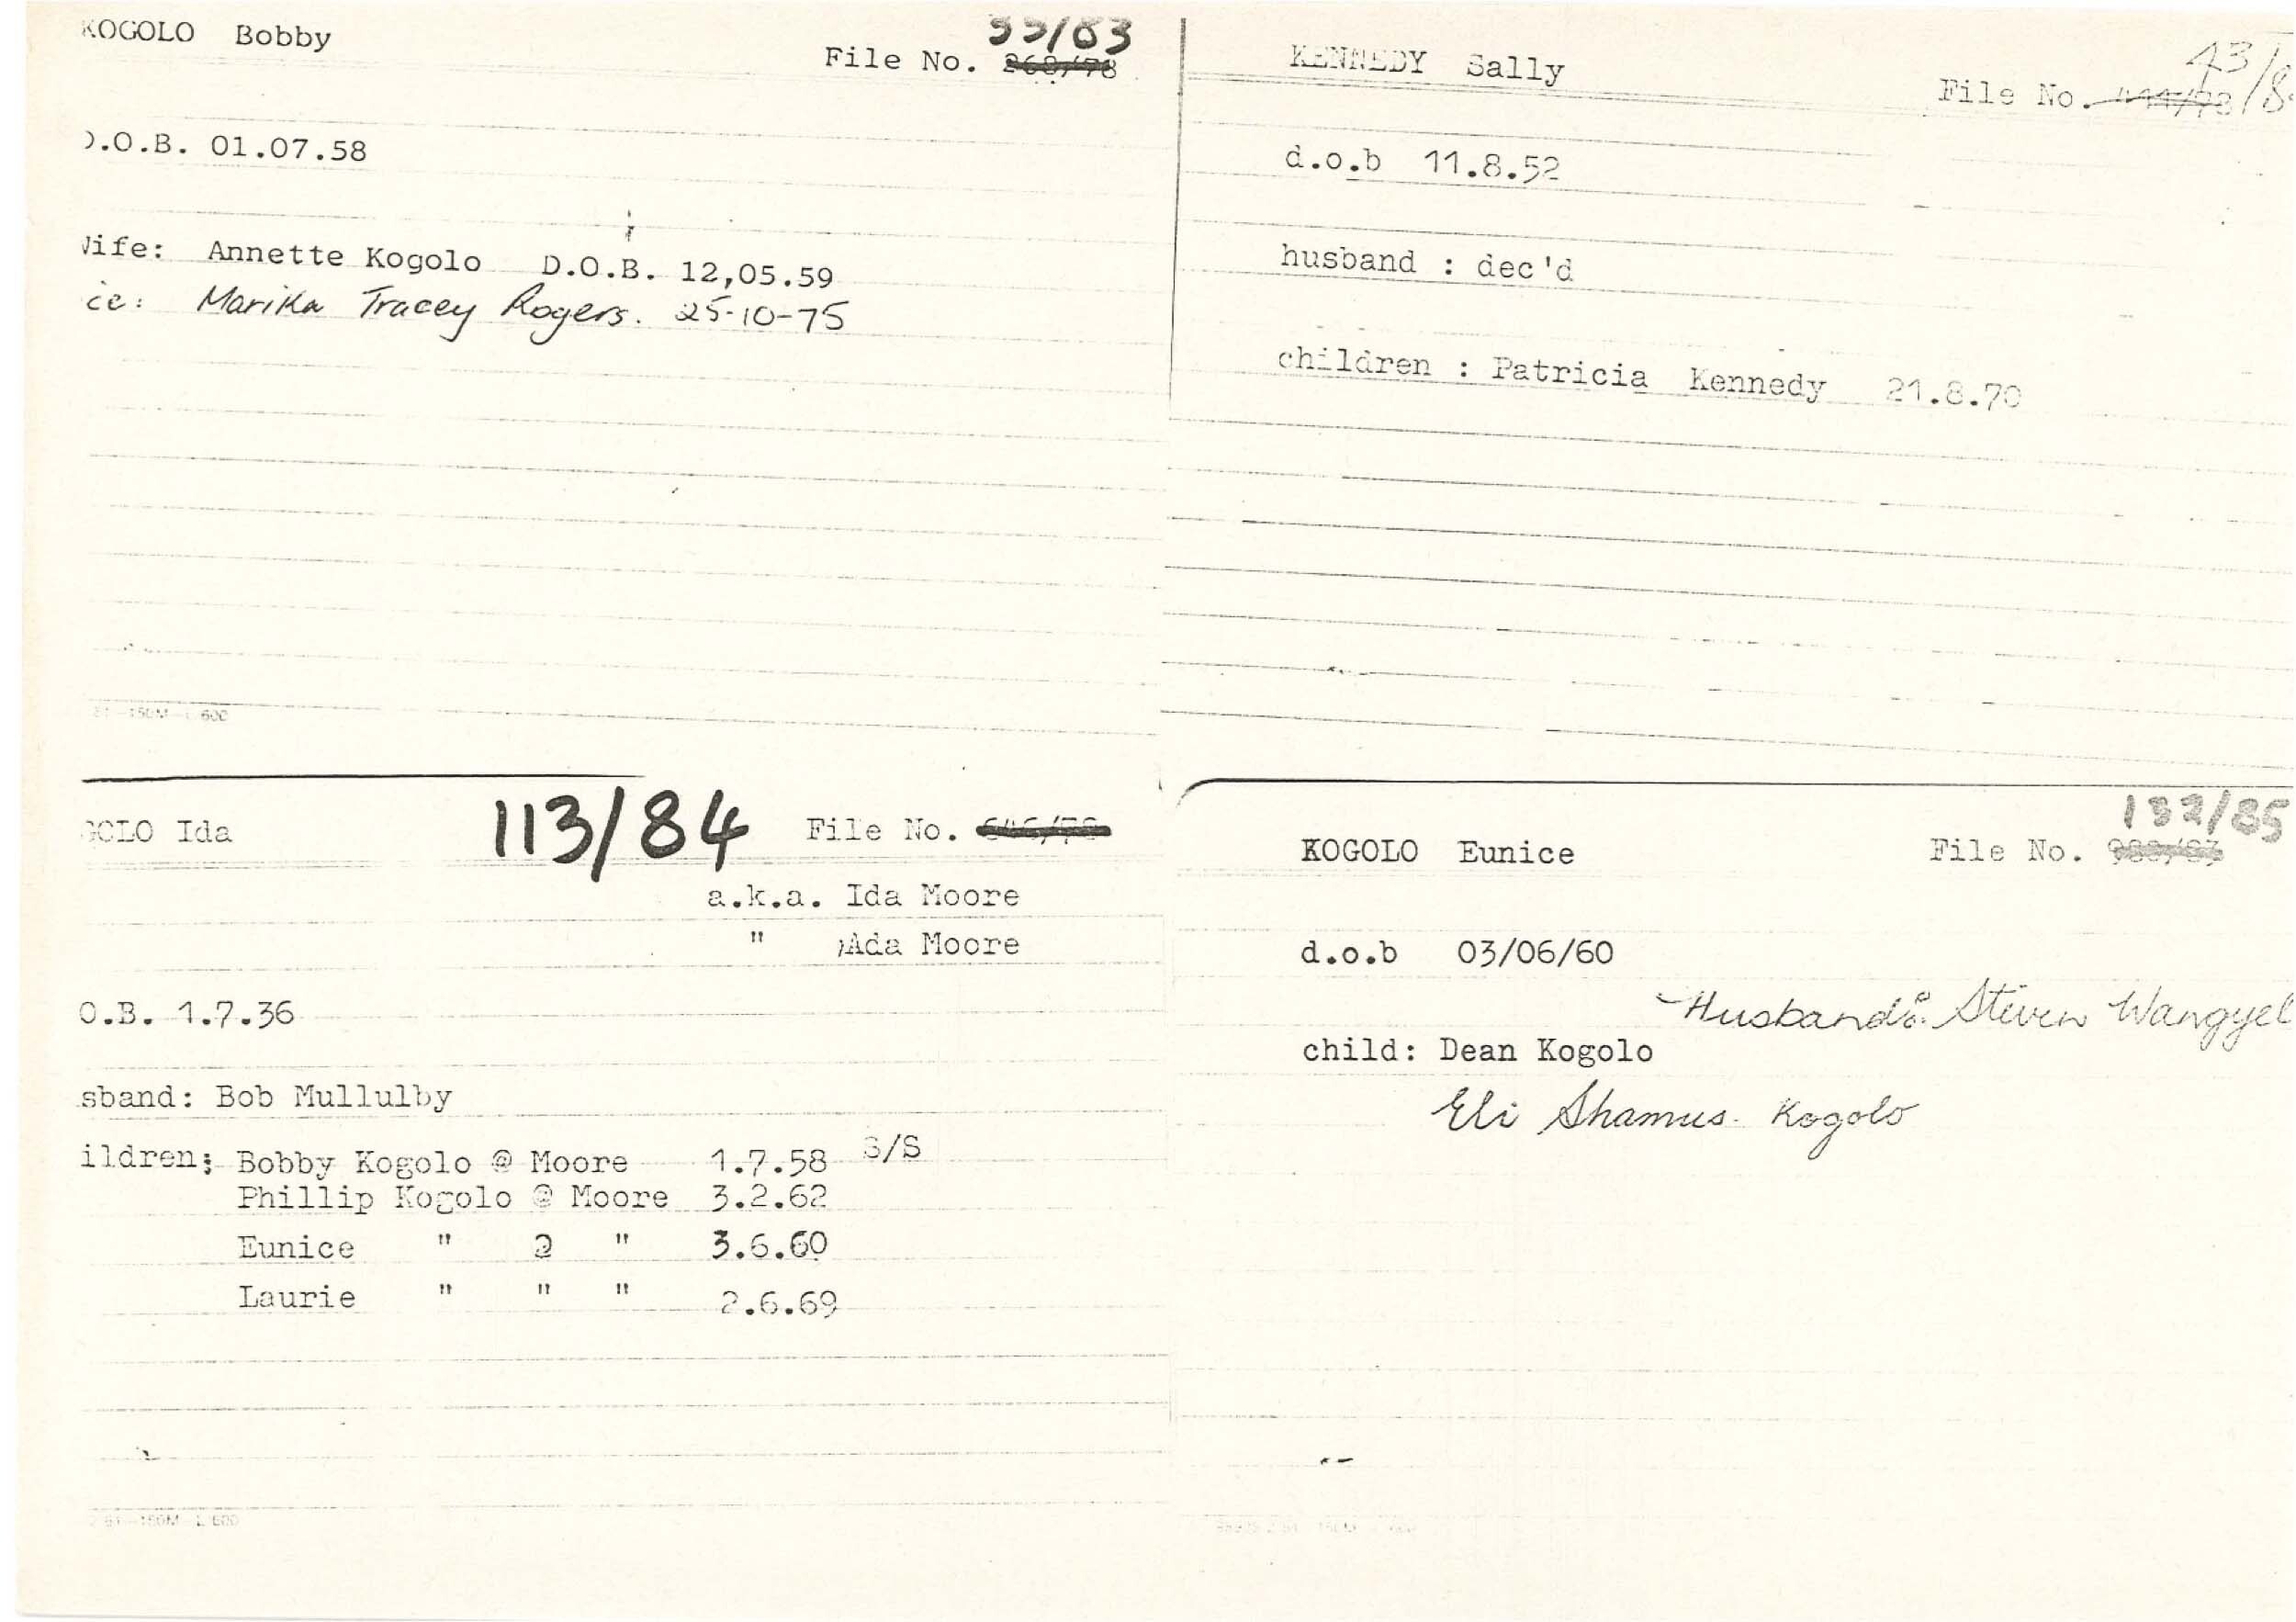 KOGOLO Bobby
55/83
File No. 268/78
D.O.B. 01.07.58
Wife: Annette Kogolo D.O.B. 12,05.59
ce: Marika Tracey Rogers. 25-10-75
KENNEDY Sally
43/8
File No.
d.o.b 11.8.52
husband : dec'd
children : Patricia Kennedy 21.8.70
GOLO Ida
113/84
File No.
a.k.a. Ida Moore
" Ada Moore
O.B. 1.7.36
sband: Bob Mullulby
ildren; Bobby Kogolo @ Moore 1.7.58 S/S
Phillip Kogolo @ Moore 3.2.62
Eunice " @ " 3.6.60
Laurie " " " 2.6.69
KOGOLO Eunice
132/85
File No.
d.o.b 03/06/60
Husband: Steven Wangyel
child: Dean Kogolo
Eli Shamus Kogolo